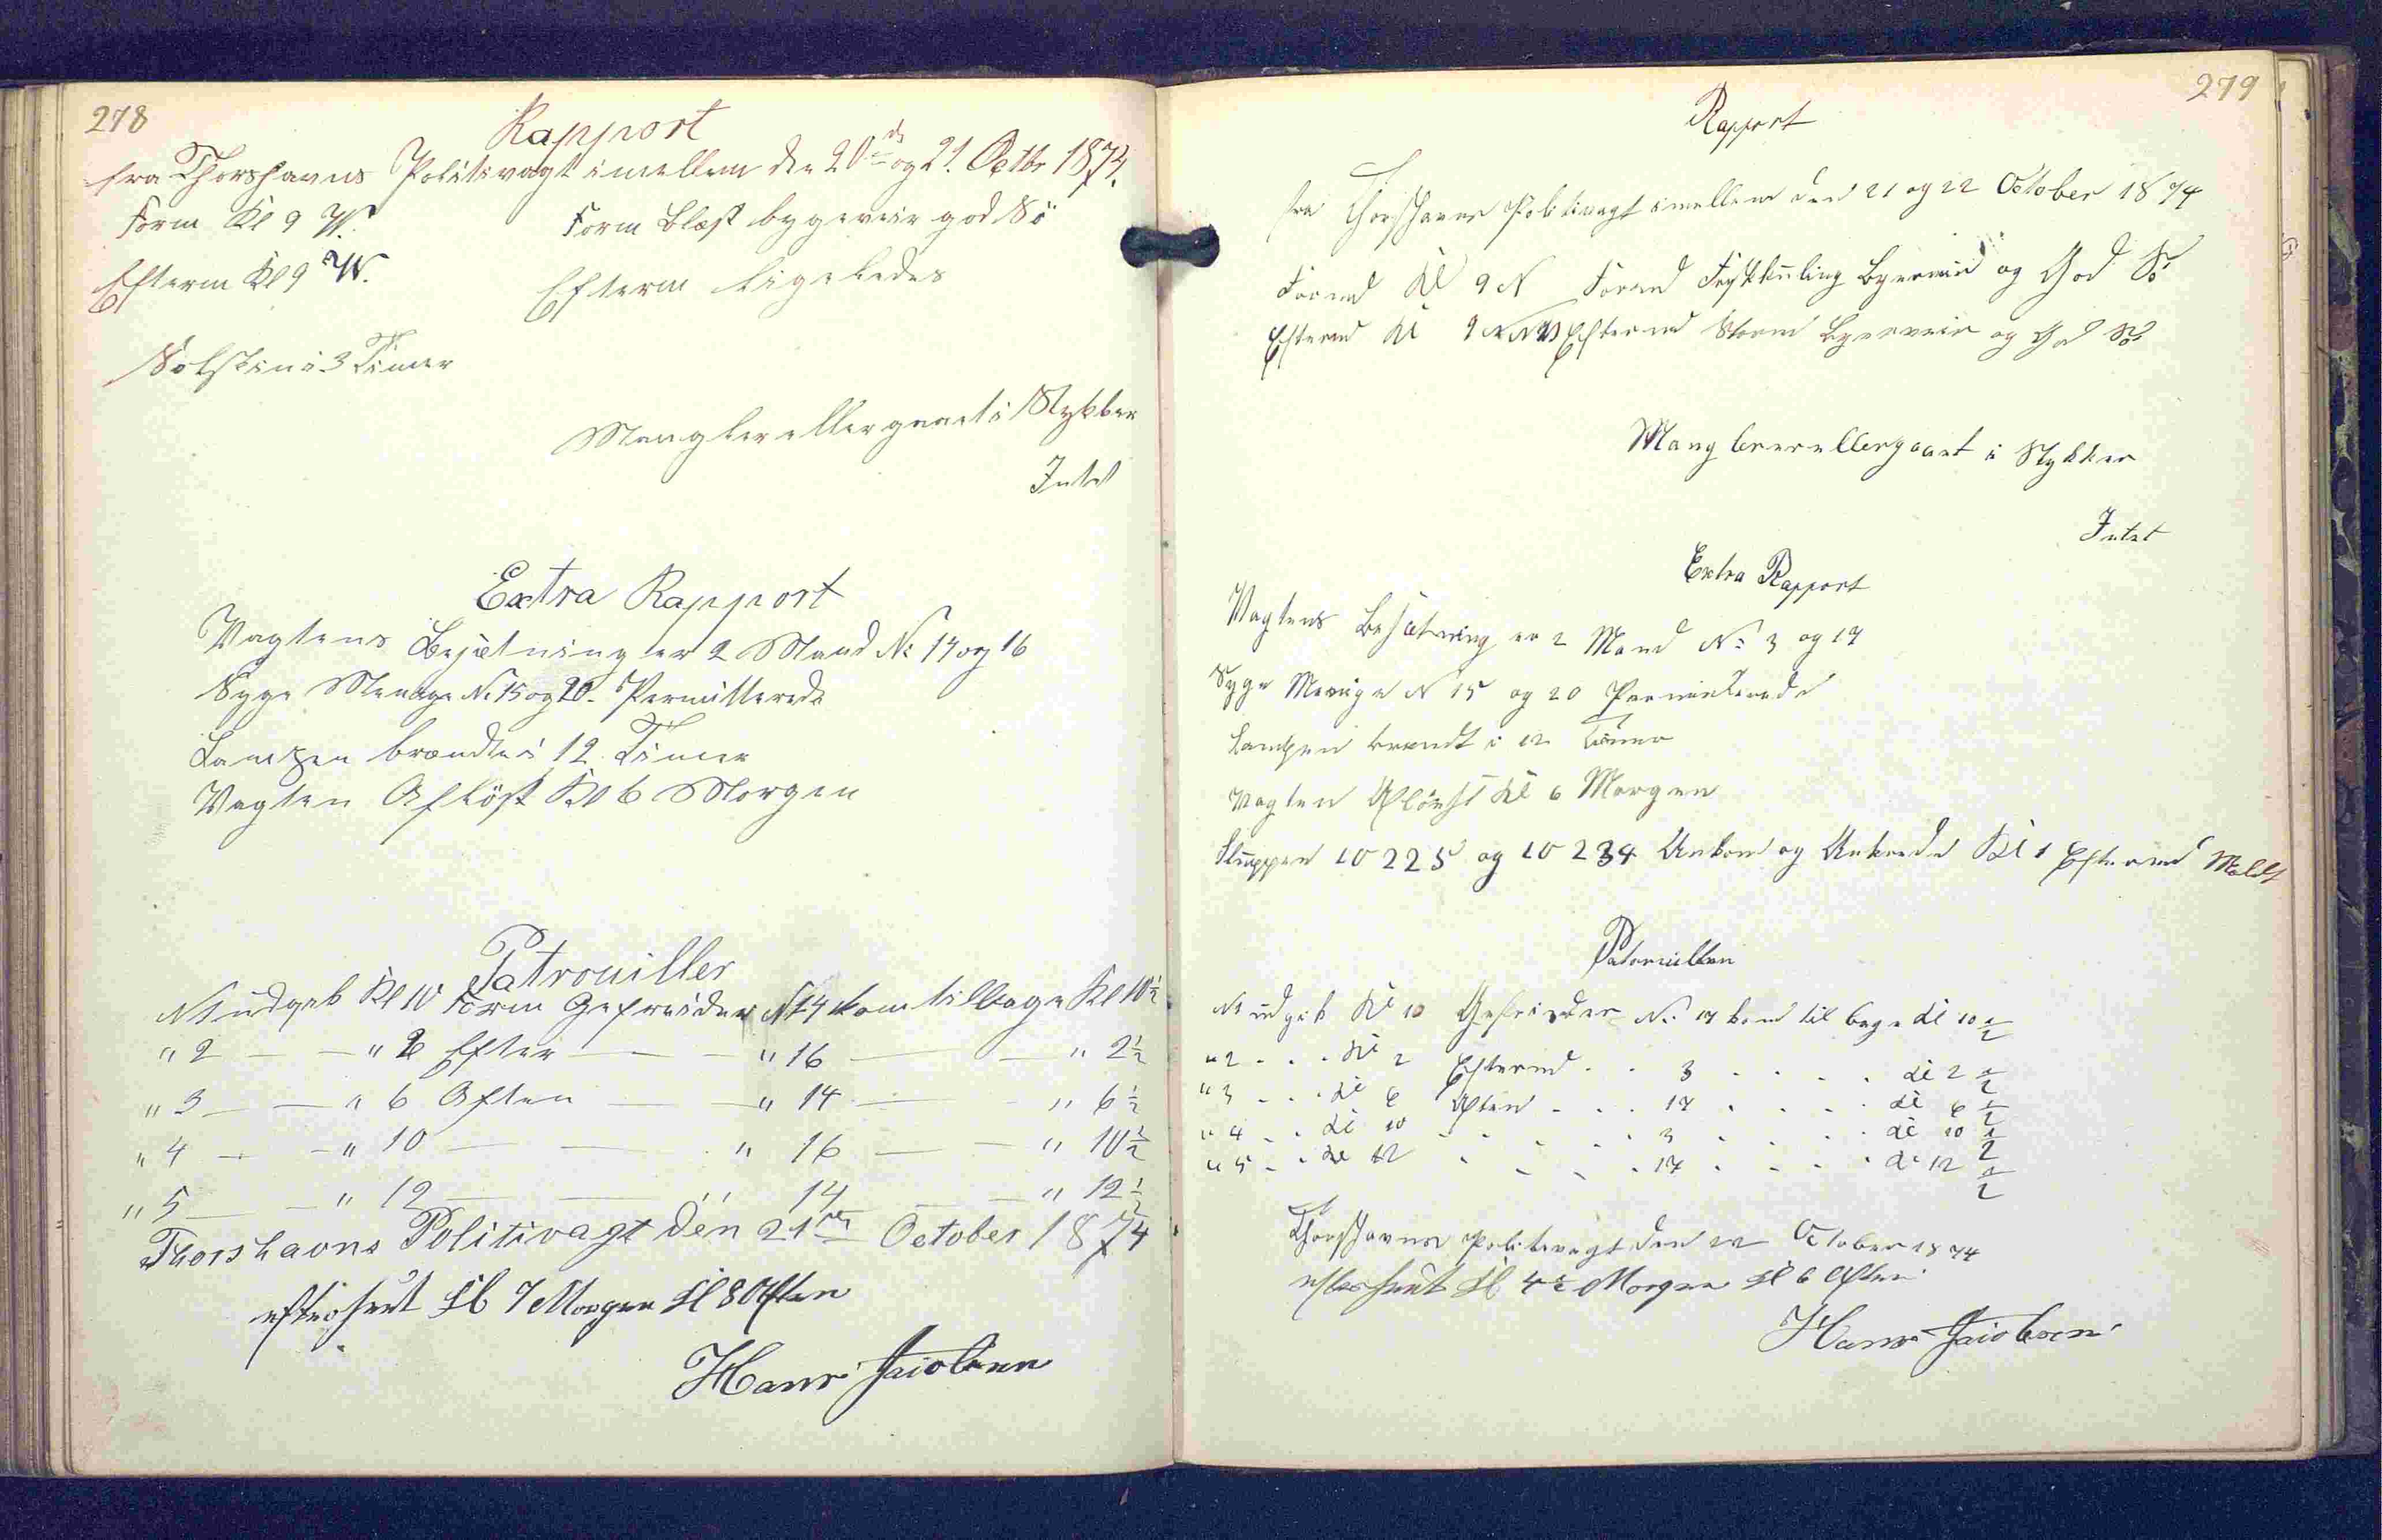 278
Rapport
fra Thorshavns Politivagt imellem den 20de og 21. Octbr 1874.
Form Kl 9 W. Form Blæst bygeveir god Sö
Efterm Kl 9 W. Efterm ligeledes
Solskin i 3 Timer
Mangler eller gaaet i Stykker
Intet
Extra Rapport
Vagtens Besætning er 2 Mand No 14 og 16
Syge Menige No 15 og 20. Permitterede
Lampen brændte i 12 Timer
Vagten Aflöst Kl 6 Morgen
Patrouiller
N 1 udgik Kl 10 Form Gefreider N 14 kom tilbage Kl 10½
" 2 — — " 2 Efter — — " 16 — — " 2½
" 3 — — " 6 Aften — — " 14 — " 6½
" 4 — — " 10 — — " 16 — — " 10½
" 5 — " 12 — — " 14 — — " 12½
Thorshavns Politivagt den 21de October 1874
efterseet Kl 7 Morgen Kl 8 Aften
Hans Jacobsen
279
Rapport
fra Thorshavns Politivagt imellem den 21 og 22 October 1874
Formd Kl 9 N Formd Friskkuling Bygeveir og God Sö
Eftermd Kl 9 NNW Eftermd Storm Bygeveir og God Sö
Mangler eller gaaet i Stykker
Intet
Extra Rapport
Vagtens Besætning er 2 Mand No 3 og 17
Syge Menige N 15 og 20 Permitterede
Lampen brændt i 12 Timer
Vagten Aflöest Kl 6 Morgen
Sluppen 10 225 og 10 234 Ankom og Ankrede Kl 1 Eftermd Meldt
Patrouiller
N 1 udgik Kl 10 Gefreider No 17 kom tilbage Kl 10½
" 2 - - - Kl 2 Eftermd - - 3 - - - - Kl 2½
" 3 - - - Kl 6 Aften - - - 17 - - - - Kl 6½
" 4 - - Kl 10 - - - - - 3 - - - - Kl 10½
" 5 - - Kl 12 - - - - 17 - - - - Kl 12½
Thorshavns Politivagt den 22 October 1874
efterseet Kl 4½ Morgen Kl 6 Aften
Hans Jacobsen